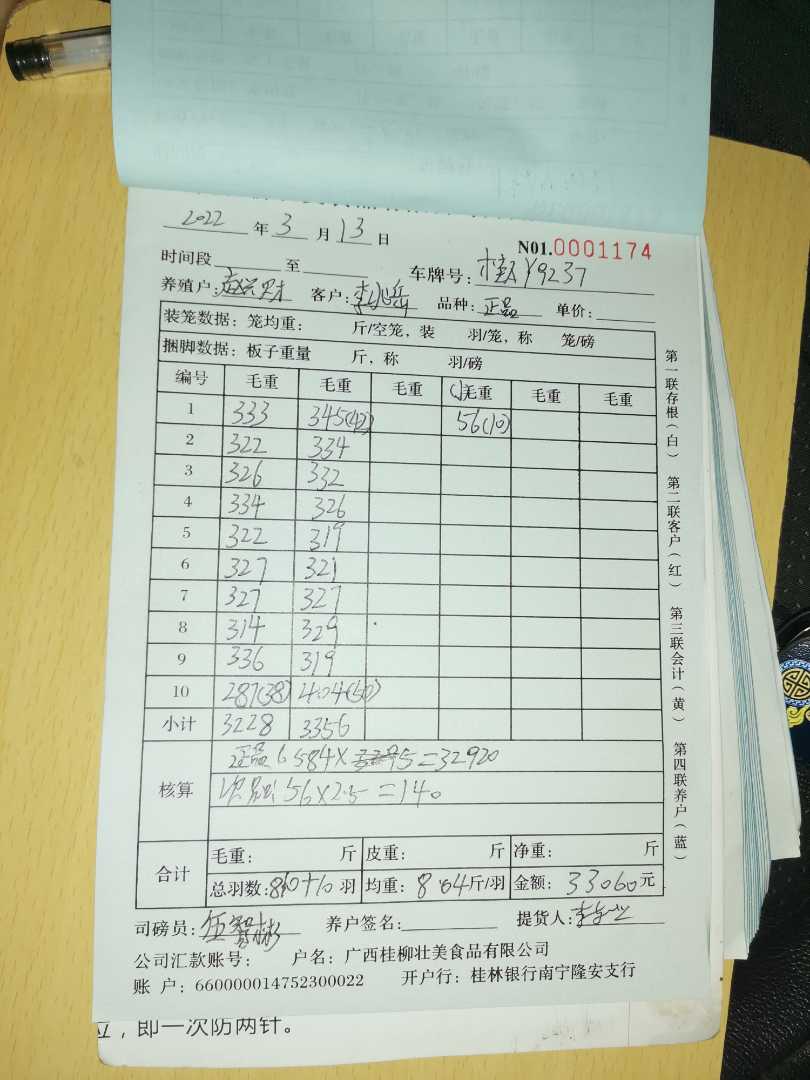 2022 年 3 月 13 日
N01.0001174
时间段 至 车牌号: 桂A Y9237
养殖户: 客户: 品种: 正品 单价:
装笼数据: 笼均重: 斤/空笼, 装 羽/笼, 称 笼/磅
捆脚数据: 板子重量 斤, 称 羽/磅
编号 毛重 毛重 毛重 (次)毛重 毛重 毛重
1 333 345(42) 56(10)
2 322 334
3 326 332
4 334 326
5 322 319
6 327 321
7 327 327
8 314 329
9 336 319
10 287(38) 404(50)
小计 3228 3356
核算
正品 6584× 5=32920
次品: 56×2.5=140
合计
毛重: 斤 皮重: 斤 净重: 斤
总羽数: 810+10 羽 均重: 8.04斤/羽 金额: 33060元
司磅员: 养户签名: 提货人:
公司汇款账号: 户名: 广西桂柳壮美食品有限公司
账 户: 660000014752300022 开户行: 桂林银行南宁隆安支行
第一联存根(白) 第二联客户(红) 第三联会计(黄) 第四联养户(蓝)
, 即一次防两针。